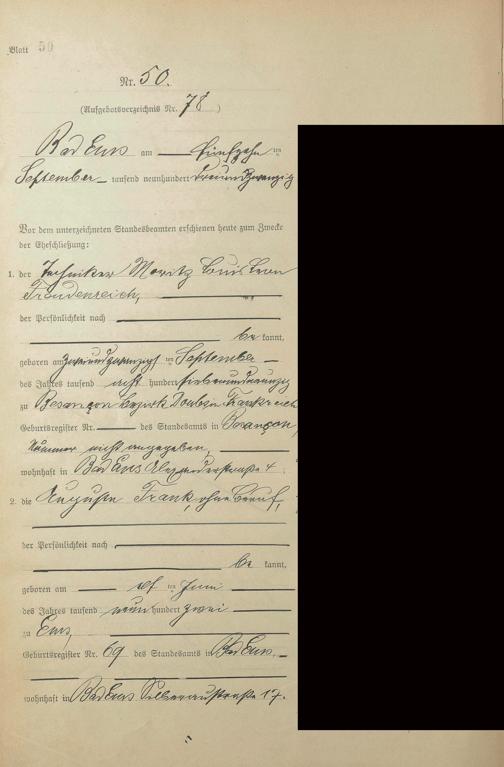 Blatt 50
Nr. 50.
(Aufgebotsverzeichnis Nr. 78)
Bad Ems am fünfzehn ten
September tausend neunhundert dreiundzwanzig
Vor dem unterzeichneten Standesbeamten erschienen heute zum Zwecke
der Eheschließung:
1. der Techniker Moritz Louis Leon
Freudenreich,
der Persönlichkeit nach
be kannt,
geboren am zweiundzwanzigsten September
des Jahres tausend acht hundert siebenundneunzig
zu Besançon Bezirk Doubs in Frankreich
Geburtsregister Nr. des Standesamts in Besançon,
Nummer nicht angegeben,
wohnhaft in Bad Ems Alexanderstraße 4
2. die Auguste Frank, ohne Beruf,
der Persönlichkeit nach
be kannt,
geboren am elf ten Juni
des Jahres tausend neun hundert zwei
zu Ems,
Geburtsregister Nr. 69 des Standesamts in Bad Ems.
wohnhaft in Bad Ems Silberaustraße 17.